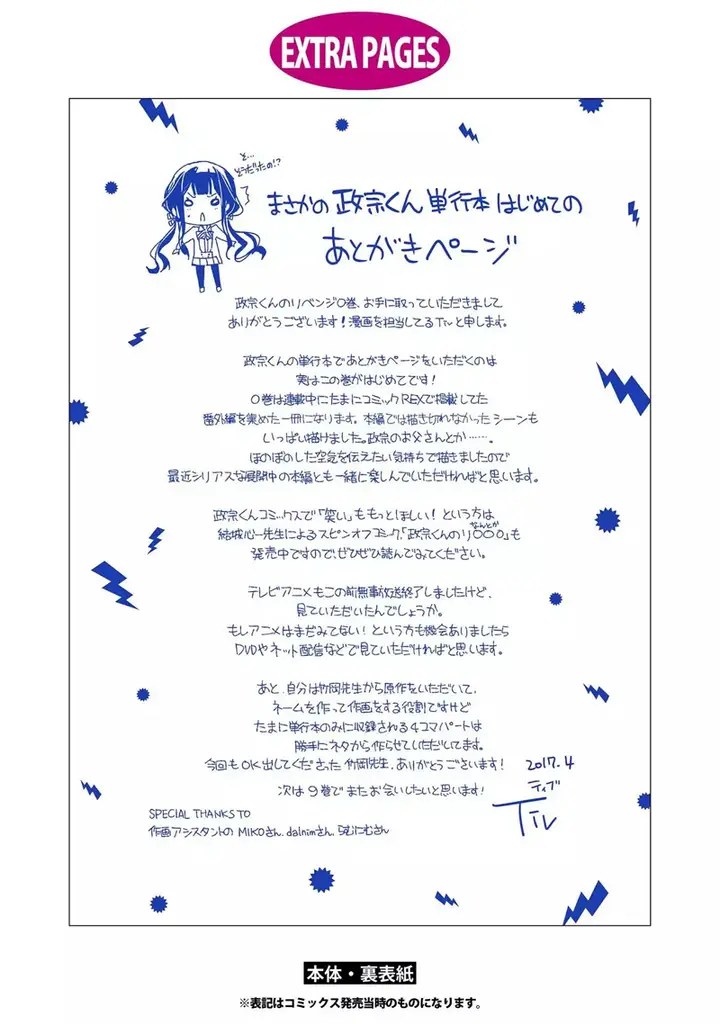 EXTRA PAGES
と…
どうだったの!?
まさかの政宗くん単行本はじめての
あとがきページ
政宗くんのリベンジ0巻、お手に取っていただきまして
ありがとうございます!漫画を担当してるTivと申します。
政宗くんの単行本であとがきページをいただくのは
実はこの巻がはじめてです!
0巻は連載中にたまにコミックREXで掲載してた
番外編を集めた一冊になります。本編では描き切れなかったシーンも
いっぱい描けました。政宗のお父さんとか……。
ほのぼのした空気を伝えたい気持ちで描きましたので
最近シリアスな展開中の本編とも一緒に楽しんでいただければと思います。
政宗くんコミックスで「笑い」ももっとほしい!という方は
結城心一先生によるスピンオフコミック、「政宗くんのリ○○○」も
なんとか
発売中ですので、ぜひぜひ読んでみてください。
テレビアニメもこの前無事放送終了しましたけど、
見ていただいたんでしょうか。
もしアニメはまだみてない!という方も機会ありましたら
DVDやネット配信などで見ていただければと思います。
あと、自分は竹岡先生から原作をいただいて、
ネームを作って作画をする役割ですけど
たまに単行本のみに収録される4コマパートは
勝手にネタから作らせていただいてます。
今回もOK出してくださった竹岡先生、ありがとうございます!
次は9巻でまたお会いしたいと思います!
2017.4
ティブ
Tiv
SPECIAL THANKS TO
作画アシスタントの MIKOさん、dalnimさん、らむにむさん
本体・裏表紙
※表記はコミックス発売当時のものになります。